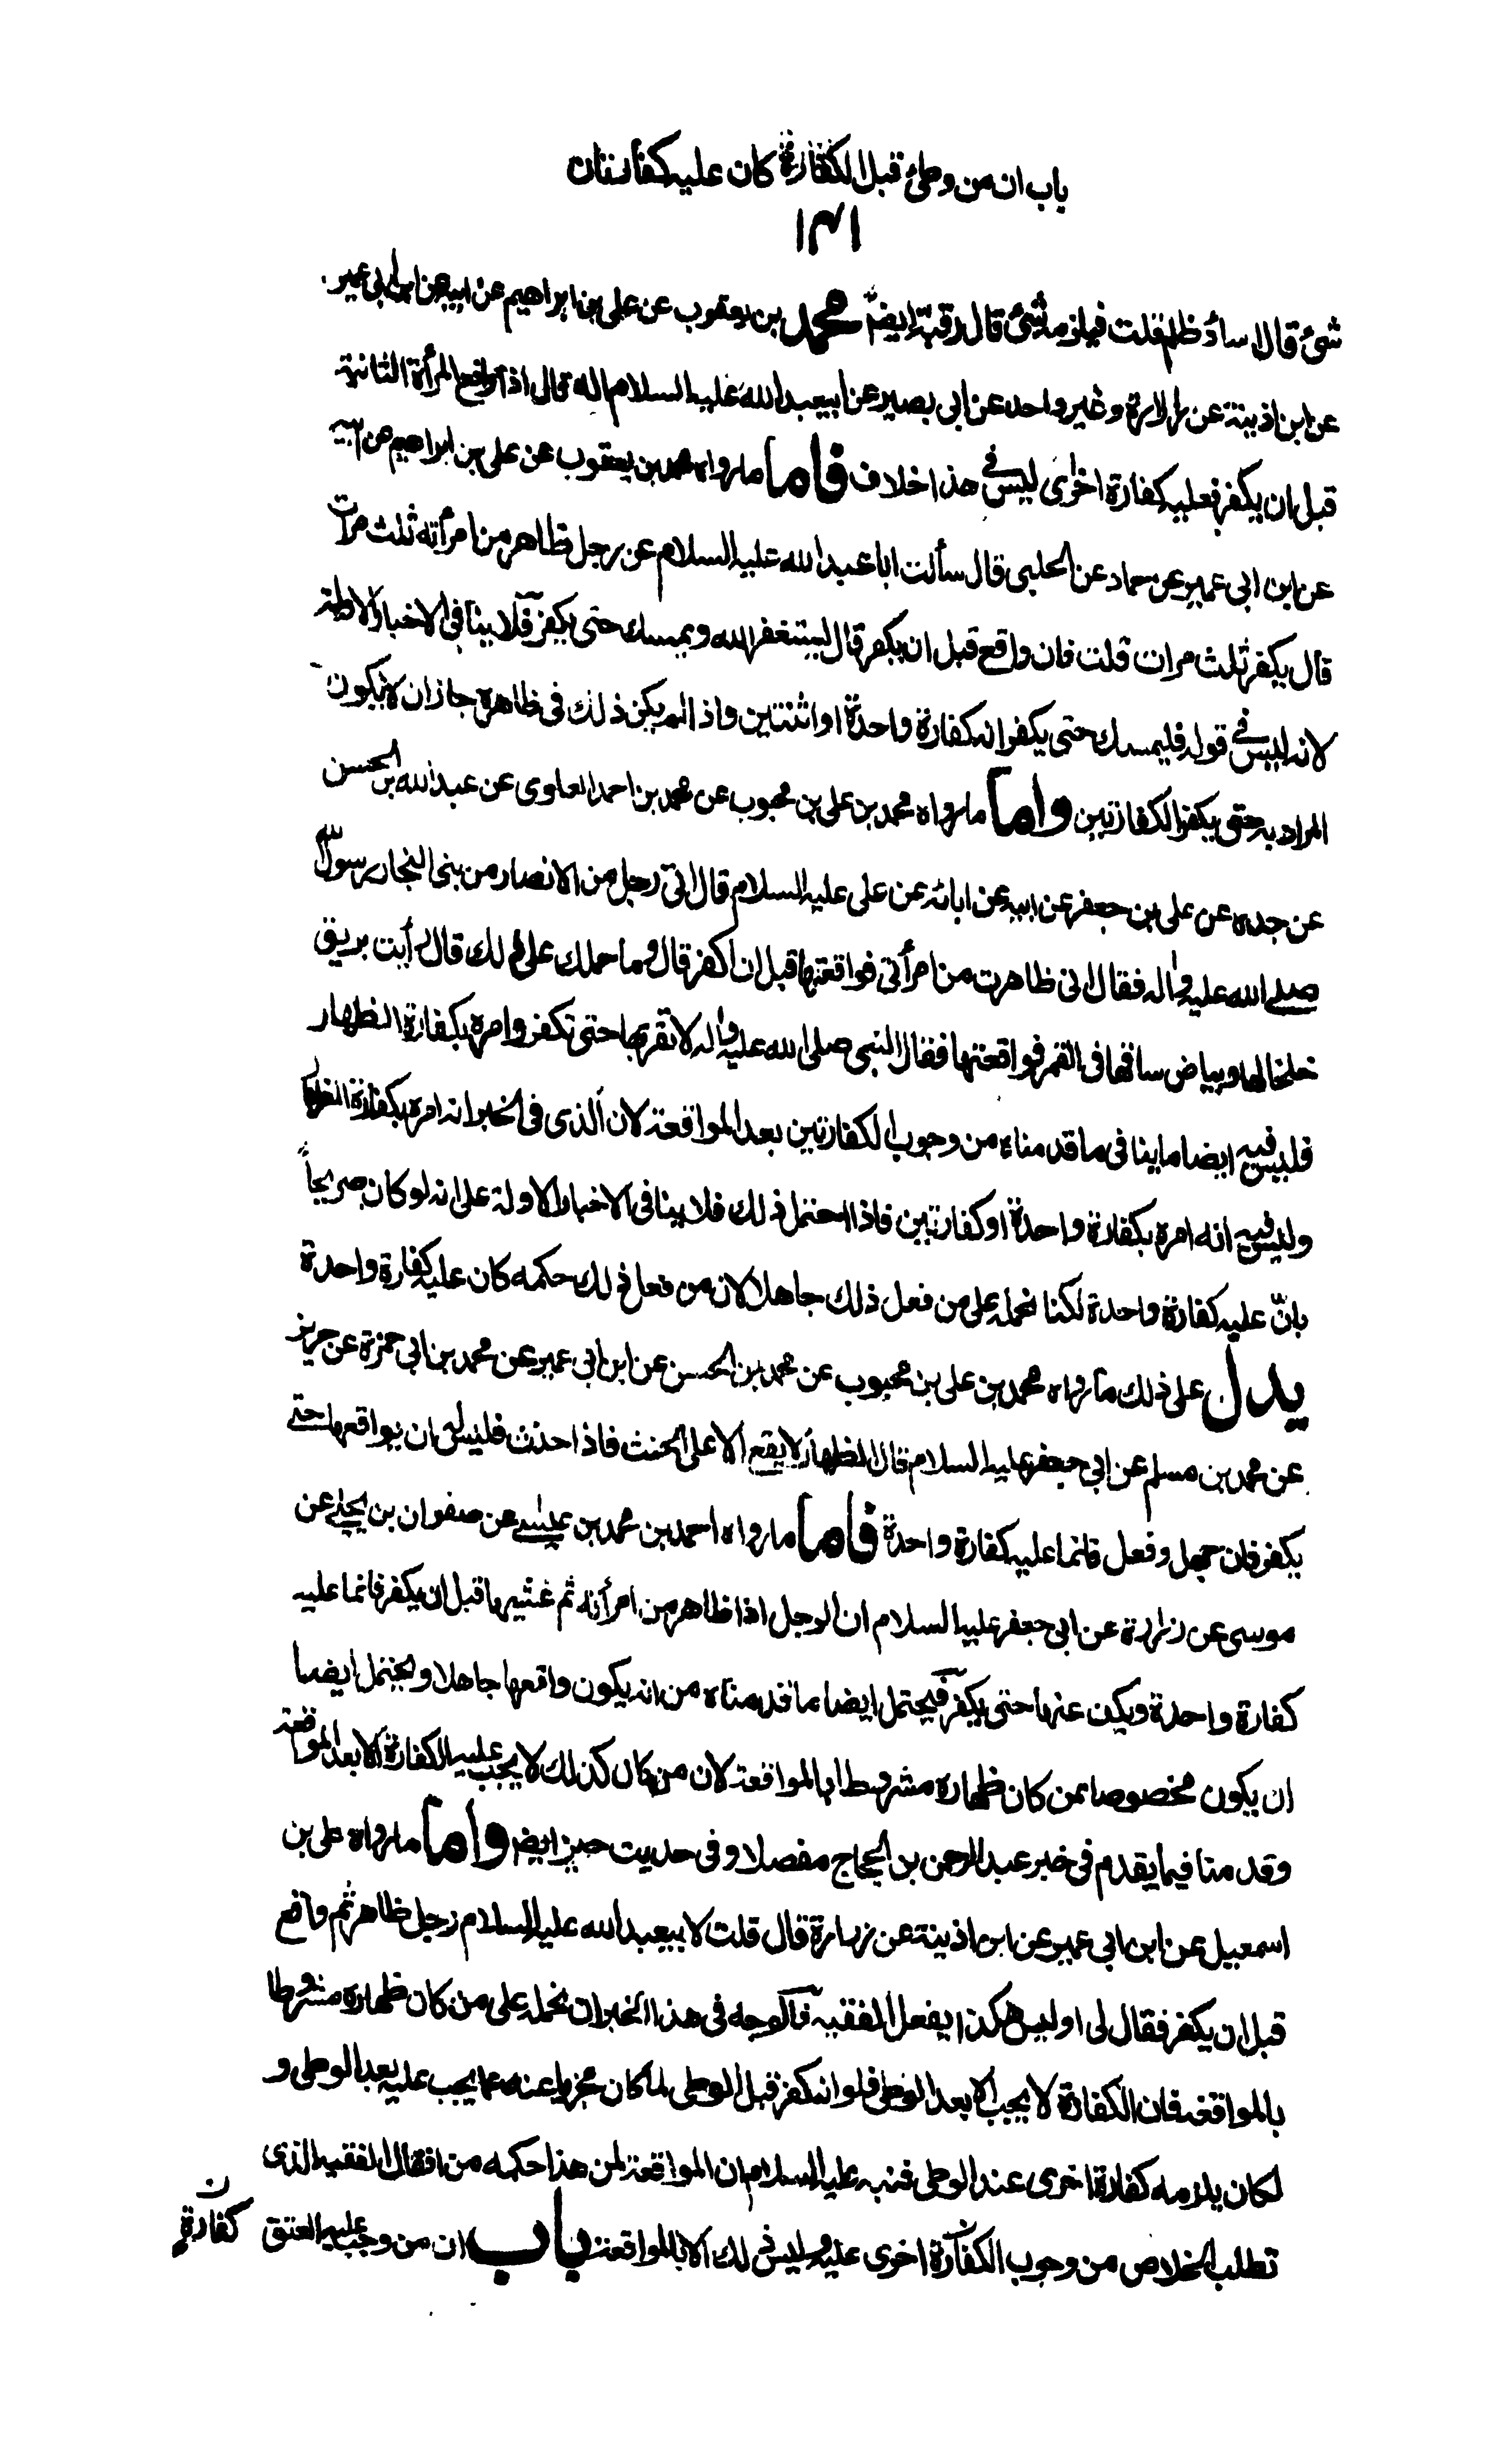 باب ان من وطئ قبل الكفارة كان عليه كفارتان
١٣١
شئ قال اساء و ظلم قلت فيلزمه شئ قال رقبة ايضا محمد بن يعقوب عن على بن ابراهيم عن ابيه عن ابن ابى عمير
عن ابن اذينة عن زرارة و غير واحد عن ابى بصير عن ابيعبد الله عليه السلام انه قال اذا واقع المرأة الثانية
قبل ان يكفر فعليه كفارة اخرى ليس فى هذا خلاف فاما ما رواه محمد بن يعقوب عن على بن ابراهيم عن ابيه
عن ابن ابى عمير عن حماد عن الحلبى قال سألت ابا عبد الله عليه السلام عن رجل ظاهر من امرأته ثلث مرات
قال يكفر ثلث مرات قلت فان واقع قبل ان يكفر قال يستغفر الله ويمسك حتى يكفر فلا ينافى الاخبار الاولة
لانه ليس فى قوله فليمسك حتى يكفر انه كفارة واحدة او اثنتين واذا لم يكن ذلك فى ظاهره جاز ان لا يكون
المراد به حتى يكفر الكفارتين واما ما رواه محمد بن على بن محبوب عن محمد بن احمد العلوى عن عبد الله بن الحسن
عن جده عن على بن جعفر عن ابيه عن ابائه عن على عليه السلام قال اتى رجل من الانصار من بنى النجار رسول الله
صلى الله عليه واله فقال انى ظاهرت من امرأتى فواقعتها قبل ان اكفر قال وما حملك على ذلك قال رأيت بريق
خلخالها وبياض ساقها فى القمر فواقعتها فقال النبى صلى الله عليه واله لا تقربها حتى تكفر وامره بكفارة الظهار
فليس فيه ايضا ما ينافى ما قدمناه من وجوب الكفارتين بعد المواقعة لان الذى فى الخبر انه امره بكفارة الظهار
وليس فيه انه امره بكفارة واحدة او كفارتين فاذا احتمل ذلك فلا ينافى الاخبار الاولة على انه لو كان صريحاً
بانّ عليه كفارة واحدة لكنا نحمله على من فعل ذلك جاهلا لان من فعل ذلك حكمه كان عليه كفارة واحدة
يدل على ذلك ما رواه محمد بن على بن محبوب عن محمد بن الحسن عن ابن ابى عمير عن محمد بن ابى حمزة عن حريز
عن محمد بن مسلم عن ابى جعفر عليه السلام قال الظهار لا يقع الا على الحنث فاذا حنث فليس له ان يواقعها حتى
يكفر فان جهل وفعل فانما عليه كفارة واحدة فاما ما رواه احمد بن محمد بن عيسى عن صفوان بن يحيى عن
موسى عن زرارة عن ابى جعفر عليه السلام ان الرجل اذا ظاهر من امرأته ثم غشيها قبل ان يكفر فانما عليه
كفارة واحدة ويكف عنها حتى يكفر فيحتمل ايضا ما قدمناه من انه يكون واقعها جاهلا ويحتمل ايضا
ان يكون مخصوصا بمن كان ظهاره مشروطا بالمواقعة لان من كان كذلك لا يجب عليه الكفارة الا بعد المواقعة
وقدمنا فيما يقدم فى خبر عبد الرحمن بن الحجاج مفصلا و فى حديث حريز ايضا واما ما رواه على بن
اسمعيل عن ابن ابى عمير عن ابن اذينة عن زرارة قال قلت لابيعبد الله عليه السلام رجل ظاهر ثم واقع
قبل ان يكفر فقال لى اوليس هكذا يفعل الفقيه فالوجه فى هذا الخبر ان نحمله على من كان ظهاره مشروطا
بالمواقعة فان الكفارة لا يجب الا بعد الوطى فلو انه كفر قبل الوطى لما كان مجزيا عنه مما يجب عليه بعد الوطى و
لكان يلزمه كفارة اخرى عند الوطى فنبه عليه السلام ان المواقعة لمن هذا حكمه من افعال الفقيه الذى
تطلب الخلاص من وجوب الكفارة اخرى عليه وليس ذلك الا بالمواقعة باب ان من وجب عليه العتق كفارة